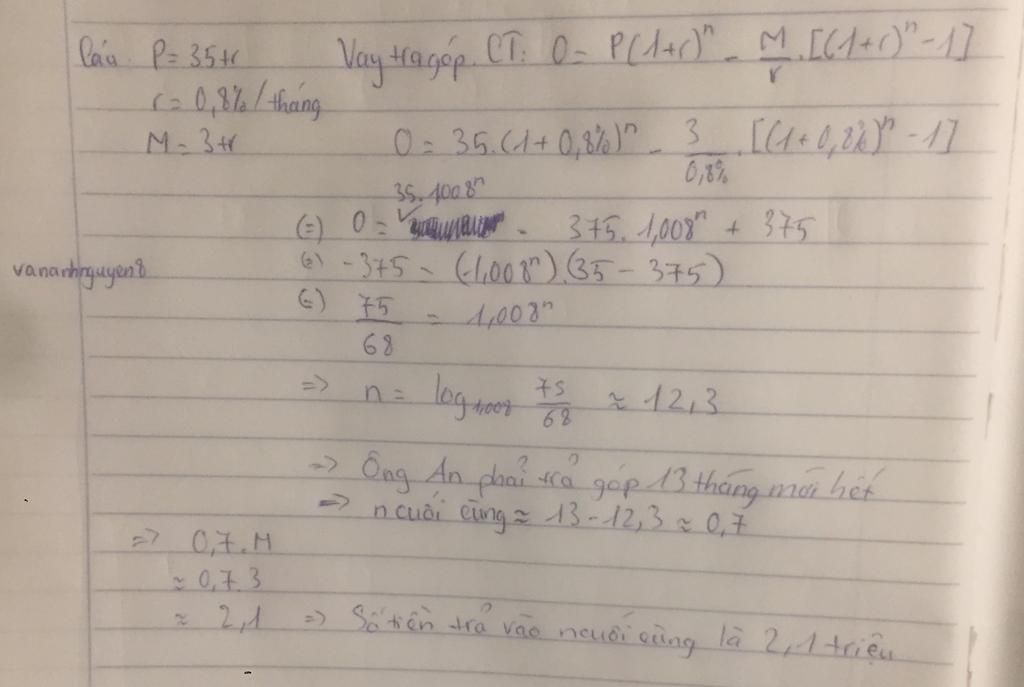 Câu. P = 35tr Vay trả góp. CT: 0 = P(1+r)ⁿ - M/r . [(1+r)ⁿ - 1]
r = 0,8% / tháng
M = 3tr 0 = 35.(1 + 0,8%)ⁿ - 3/0,8% . [(1 + 0,8%)ⁿ - 1]
35.1008ⁿ
(=) 0 = - 375. 1,008ⁿ + 375
(=) -375 = (1,008ⁿ).(35 - 375)
vananhnguyen8
(=) 75/68 = 1,008ⁿ
=> n = log₁,₀₀₈ 75/68 ≈ 12,3
=> Ông An phải trả góp 13 tháng mới hết
=> n cuối cùng ≈ 13 - 12,3 ≈ 0,7
=> 0,7.M
≈ 0,7.3
≈ 2,1 => Số tiền trả vào n cuối cùng là 2,1 triệu